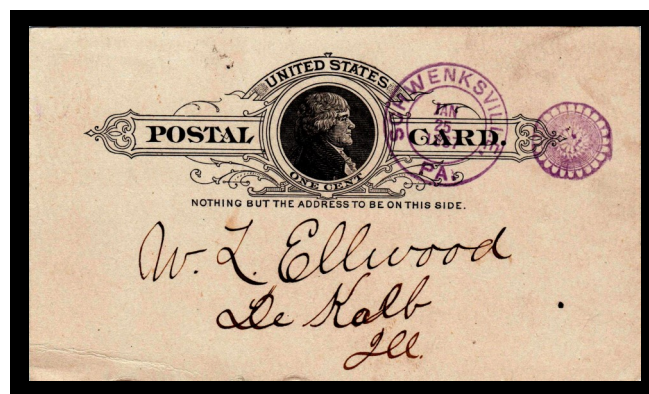 UNITED STATES
POSTAL CARD.
ONE CENT
SCHWENKSVILLE
JAN
25
PA.
NOTHING BUT THE ADDRESS TO BE ON THIS SIDE.
W. L. Ellwood
De Kalb
Ill.